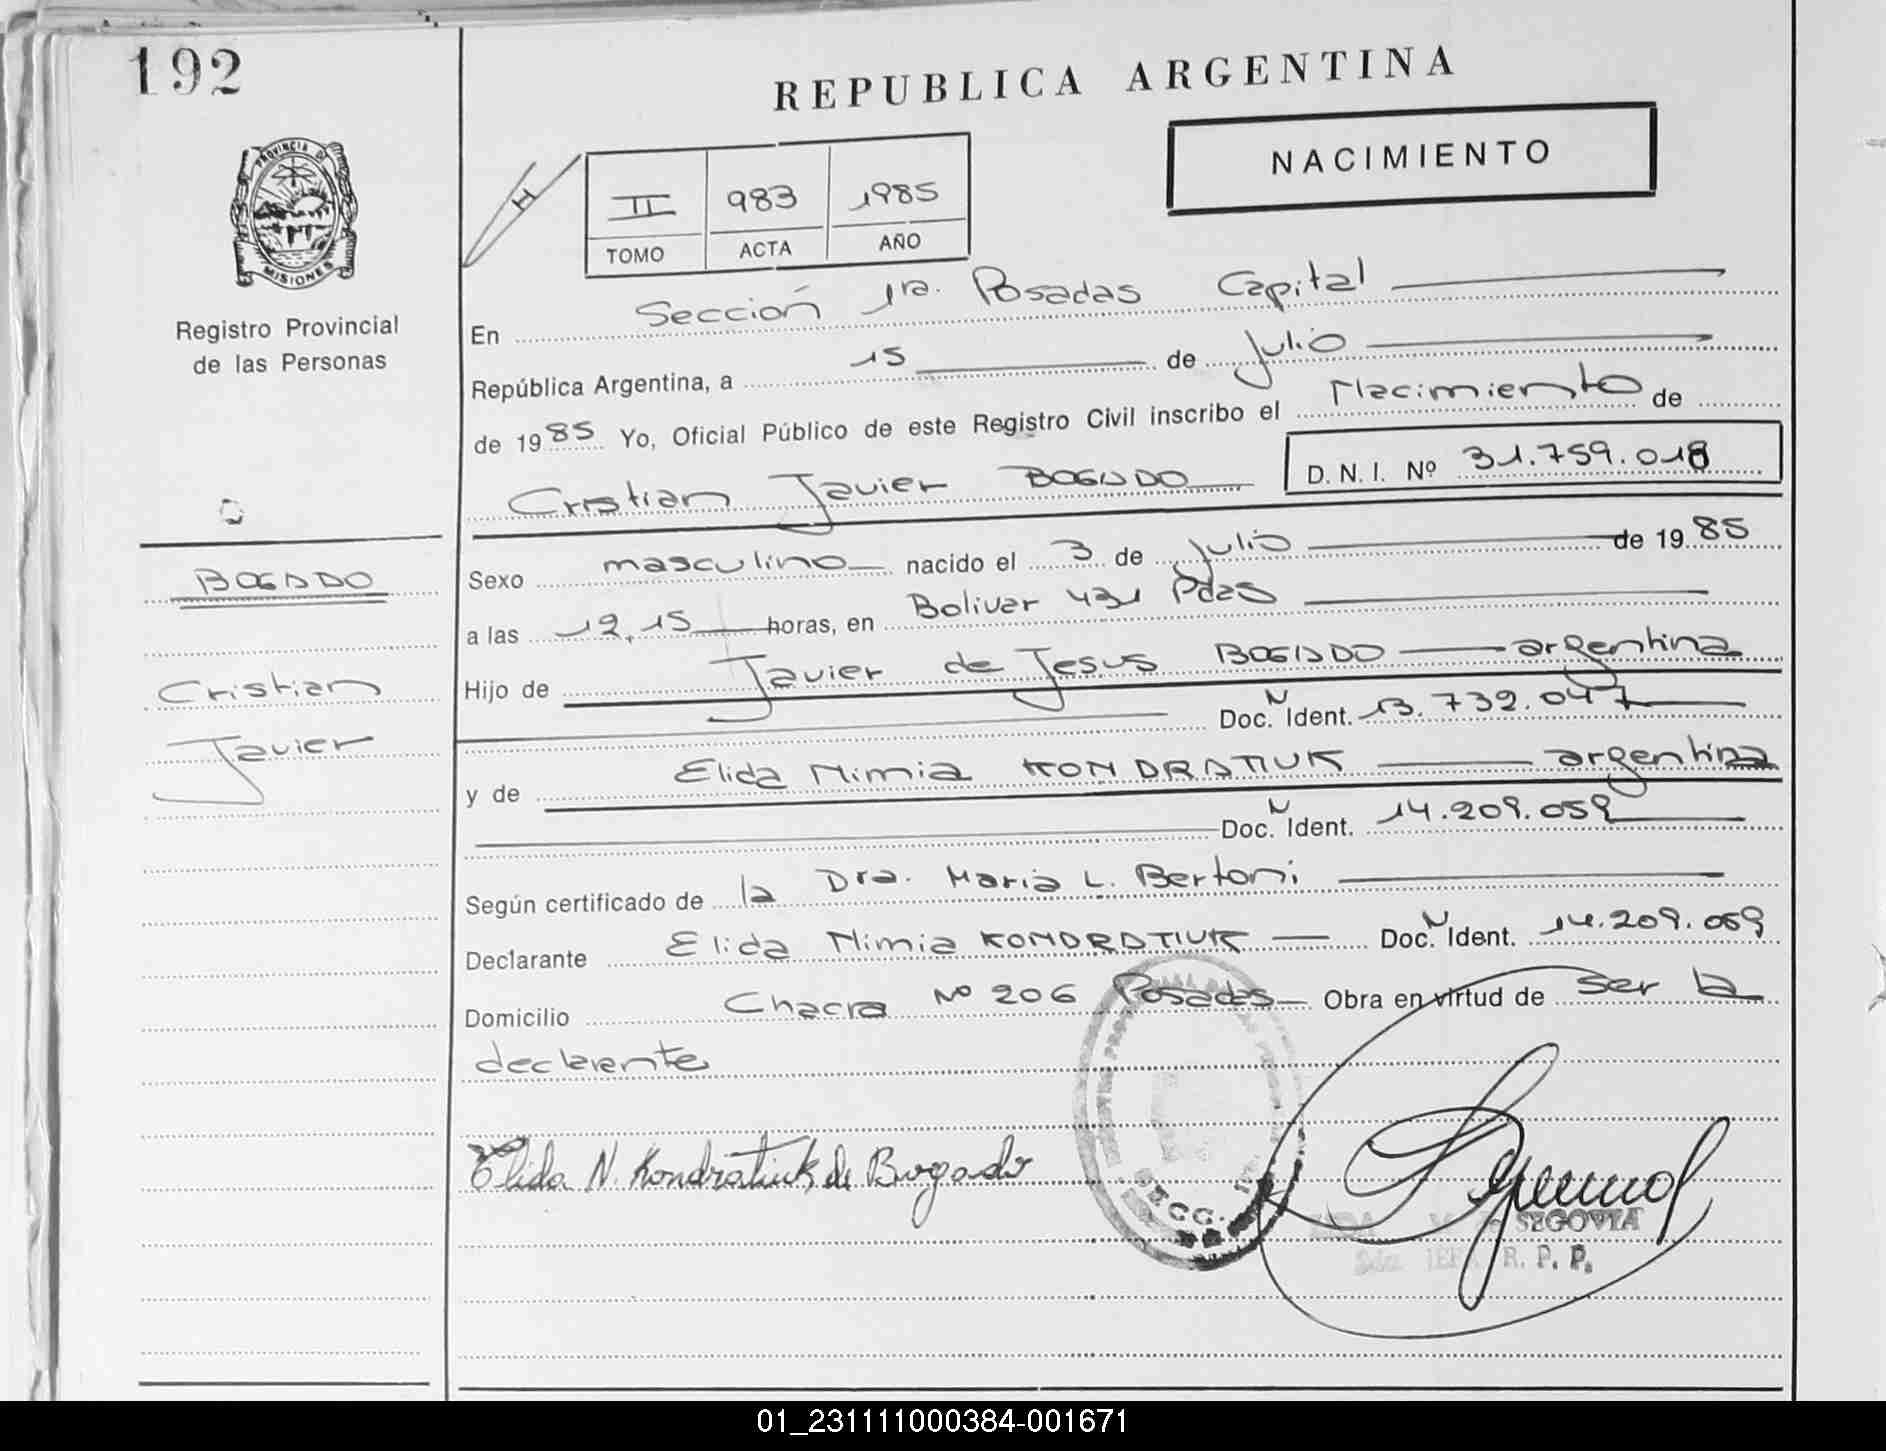 192
REPUBLICA ARGENTINA
NACIMIENTO
PROVINCIA DE
MISIONES
Registro Provincial
de las Personas
H
II 983 1985
TOMO ACTA AÑO
En Sección 1ra. Posadas Capital
República Argentina, a 15 de Julio
de 1985 Yo, Oficial Público de este Registro Civil inscribo el Nacimiento de
Cristian Javier BOGADO D. N. I. Nº 31.759.018
Sexo masculino nacido el 3 de Julio de 1985
a las 12,15 horas, en Bolivar 431 Pdas
Hijo de Javier de Jesus BOGADO argentina
Doc. N Ident. 13.732.047
y de Elida Nimia KONDRATIUK argentina
Doc. N Ident. 14.209.059
Según certificado de la Dra. Maria L. Bertoni
Declarante Elida Nimia KONDRATIUK Doc. N Ident. 14.209.059
Domicilio Chacra Nº 206 Posadas Obra en virtud de ser la
declarante
BOGADO
Cristian
Javier
Elida N. Kondratiuk de Bogado
SECC.
SEGOVIA
R. P. P.
01_231111000384-001671